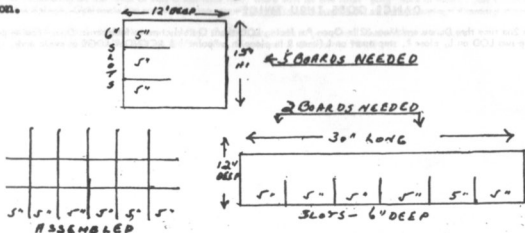 on.
12" DEEP
6" SLOTS
5"
5"
5"
15" HI
5 BOARDS NEEDED
2 BOARDS NEEDED
30" LONG
12" DEEP
5" 5" 5" 5" 5" 5"
SLOTS - 6" DEEP
5" 5" 5" 5" 5" 5"
ASSEMBLED